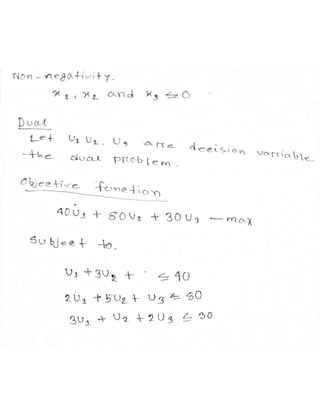 Non-negativity.
x1, x2 and x3 ≤ 0
Dual
Let U1 U2, U3 arre decision varriable
the dual problem.
Objective function
40U1 + 80U2 + 30U3 — max
Subject to.
U1 + 3U2 + ≤ 40
2U1 + 5U2 + U3 ≤ 80
3U1 + U2 + 2U3 ≤ 30